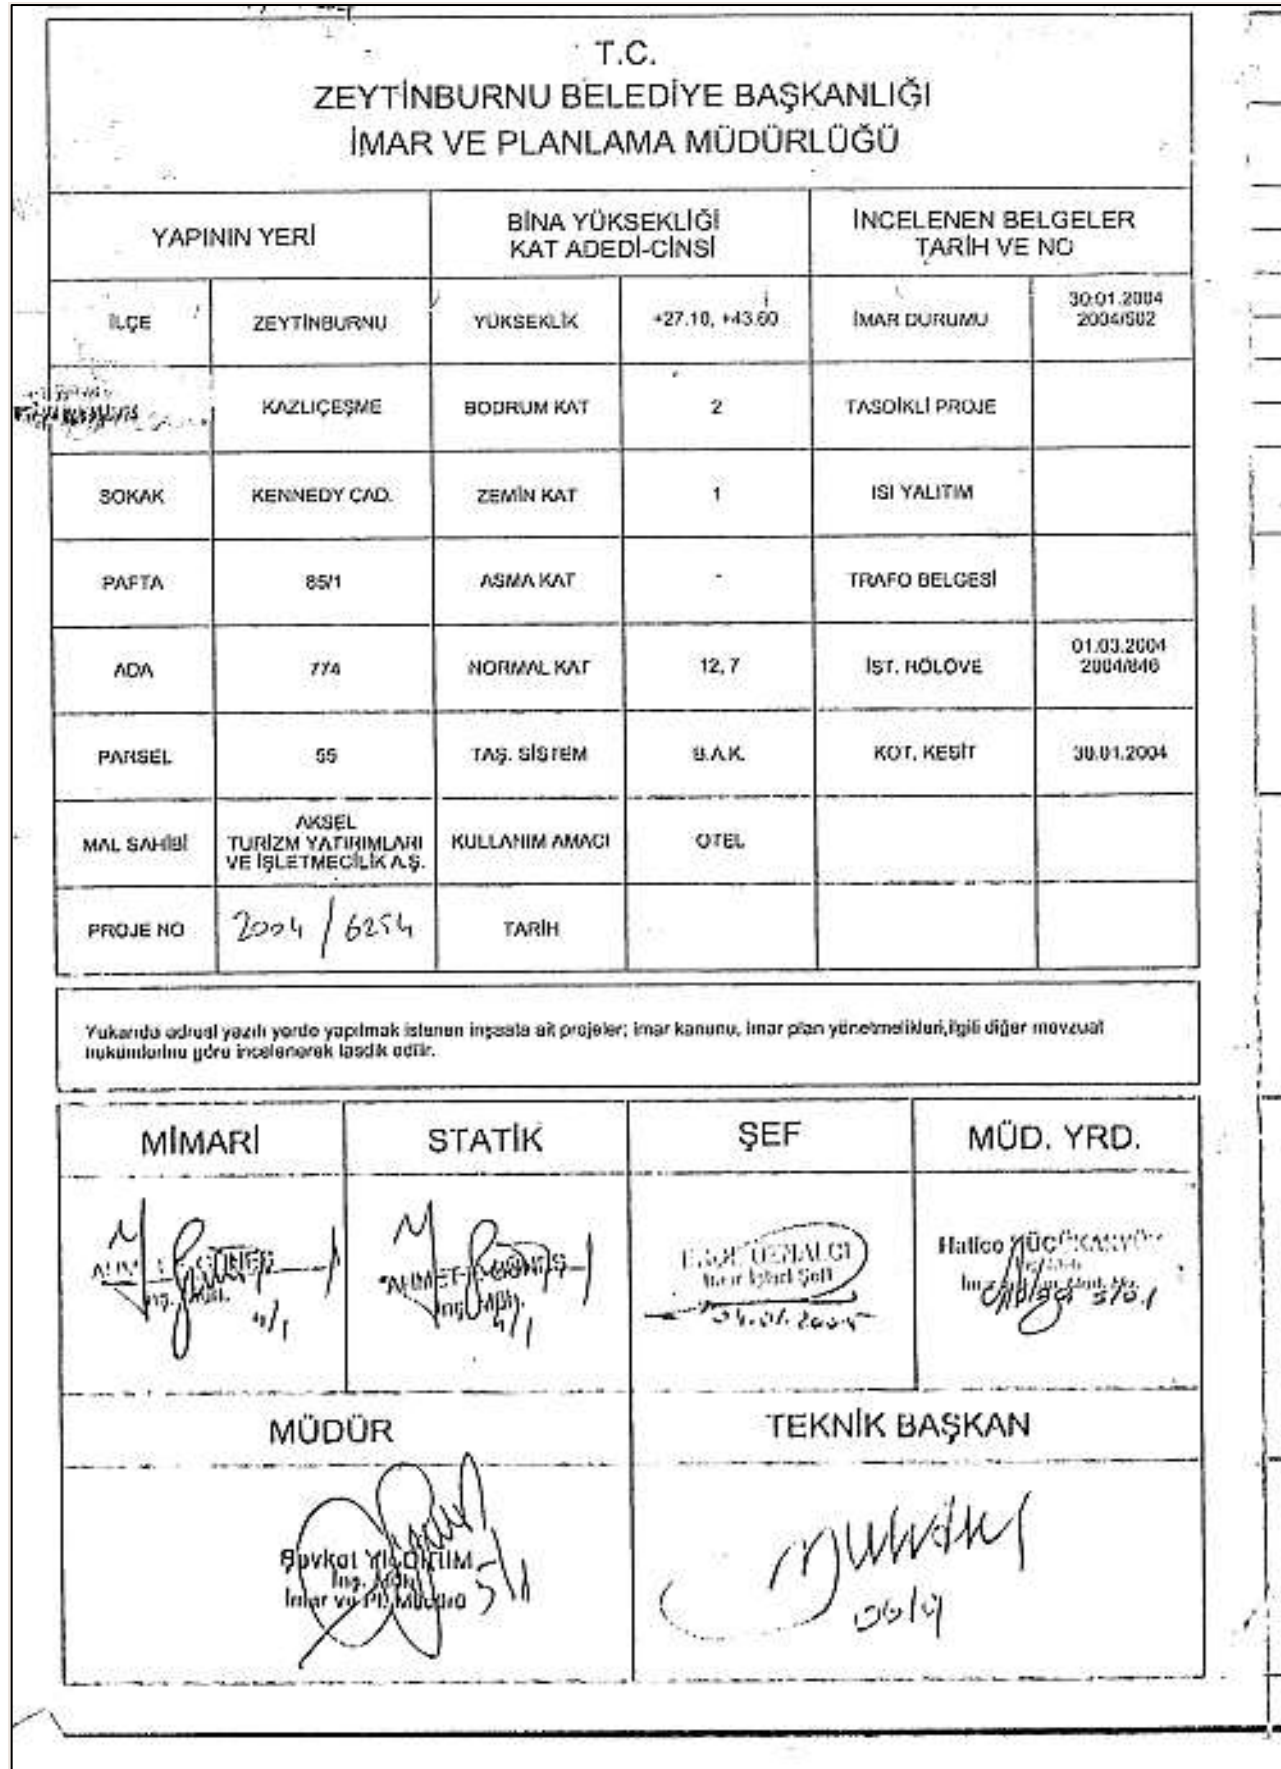 T.C.
ZEYTİNBURNU BELEDİYE BAŞKANLIĞI
İMAR VE PLANLAMA MÜDÜRLÜĞÜ
YAPININ YERİ
BİNA YÜKSEKLİĞİ
KAT ADEDİ-CİNSİ
İNCELENEN BELGELER
TARİH VE NO
İLÇE ZEYTİNBURNU YÜKSEKLİK +27.10, +43.60 İMAR DURUMU 30.01.2004
2004/502
KAZLIÇEŞME BODRUM KAT 2 TASDİKLİ PROJE
SOKAK KENNEDY CAD. ZEMİN KAT 1 ISI YALITIM
PAFTA 85/1 ASMA KAT - TRAFO BELGESİ
ADA 774 NORMAL KAT 12, 7 İST. RÖLÖVE 01.03.2004
2004/846
PARSEL 55 TAŞ. SİSTEM B.A.K. KOT. KESİT 30.01.2004
MAL SAHİBİ AKSEL
TURİZM YATIRIMLARI
VE İŞLETMECİLİK A.Ş.
KULLANIM AMACI OTEL
PROJE NO 2004 / 6254 TARİH
Yukarıda adresi yazılı yerde yapılmak istenen inşaata ait projeler; imar kanunu, imar plan yönetmelikleri,ilgili diğer mevzuat
hükümlerine göre incelenerek tasdik edilir.
MİMARİ STATİK ŞEF MÜD. YRD.
AHMET
AHMET
İmar İşleri Şefi
04.01.2005
Hatice
MÜDÜR TEKNİK BAŞKAN
Şevket YILDIRIM
İnş. Müh.
İmar ve Pl. Müdürü
5/1